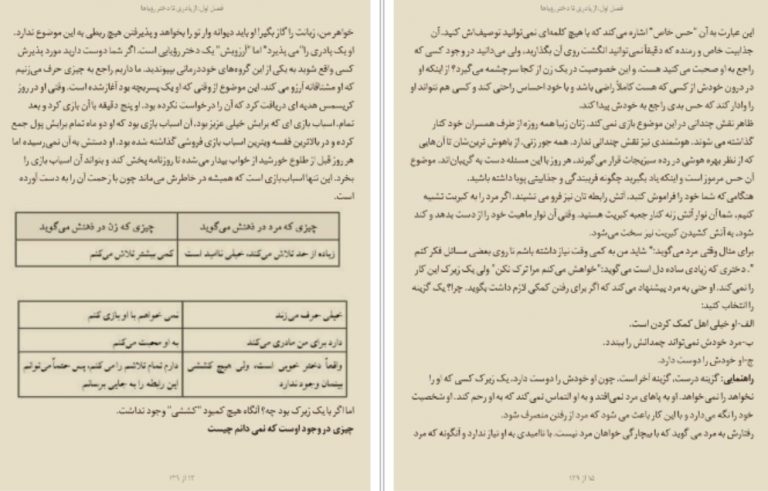 فصل اول: از پادری تا دختر رویاها
خواهر من، زبانت را گاز بگیر! او باید دیوانه وار تو را بخواهد و پذیرفتن هیچ ربطی به این موضوع ندارد.
او یک پادری را "می پذیرد" اما "آرزویش" یک دختر رؤیایی است. اگر شما دوست دارید مورد پذیرش
کسی واقع شوید به یکی از این گروه‌های خوددرمانی بپیوندید. ما داریم راجع به چیزی حرف می‌زنیم
که او مشتاقانه آرزو می کند. این موضوع از وقتی که او یک پسربچه بود آغاز شده است. وقتی او در روز
کریسمس هدیه ای دریافت کرد که آن را درخواست نکرده بود، او پنج دقیقه با آن بازی کرد و بعد
تمام. اسباب بازی ای که برایش خیلی عزیز بود، آن اسباب بازی بود که او دو ماه تمام برایش پول جمع
کرده و در بالاترین قفسه ویترین اسباب بازی فروشی گذاشته شده بود. او دستش به آن نمی‌رسیده اما
هر روز قبل از طلوع خورشید از خواب بیدار می‌شده تا روزنامه پخش کند و بتواند آن اسباب بازی را
بخرد. این تنها اسباب‌بازی است که همیشه در خاطرش می‌ماند چون با زحمت آن را به دست آورده
است.
چیزی که مرد در ذهنش می‌گوید چیزی که زن در ذهنش می‌گوید
زیاده از حد تلاش می‌کند، خیلی ناامید است کمی بیشتر تلاش می‌کنم
خیلی حرف می‌زند نمی خواهم با او بازی کنم
دارد برای من مادری می‌کند به او محبت می‌کنم
واقعاً دختر خوبی است، ولی هیچ کششی دارم تمام تلاشم را می کنم، پس حتماً می‌توانم
بینمان وجود ندارد این رابطه را به جایی برسانم
اما اگر با یک زیرک بود چه؟ آنگاه هیچ کمبود "کششی" وجود نداشت.
چیزی در وجود اوست که نمی دانم چیست
۱۳۹ از ۱۴
فصل اول: از پادری تا دختر رویاها
این عبارت به آن "حس خاص" اشاره می‌کند که با هیچ کلمه‌ای نمی‌توانید توصیف‌اش کنید. آن
جذابیت خاص و رمنده که دقیقاً نمی‌توانید انگشت روی آن بگذارید، ولی می‌دانید در وجود کسی که
راجع به او صحبت می کنید هست. و این خصوصیت در یک زن از کجا سرچشمه می‌گیرد؟ از اینکه او
در درون خودش از کسی که هست کاملاً راضی باشد و با خود احساس راحتی کند و کسی هم نتواند او
را وادار کند که حس بدی راجع به خودش پیدا کند.
ظاهر نقش چندانی در این موضوع بازی نمی کند. زنان زیبا همه روزه از طرف همسران خود کنار
گذاشته می شوند. هوشمندی نیز نقش چندانی ندارد. همه جور زنی، از باهوش ترین‌شان تا آن‌هایی
که از نظر بهره هوشی در رده سبزیجات قرار می‌گیرند، هر روز با این مسئله دست به گریبان‌اند. موضوع
آن حس مرموز است و اینکه یاد بگیرید چگونه فریبندگی و جذابیتی پویا داشته باشید.
هنگامی که شما خود را فراموش کنید، آتش رابطه تان نیز فرو می نشیند. اگر مرد را به کبریت تشبیه
کنیم، شما آن نوار آتش زنه کنار جعبه کبریت هستید. وقتی آن نوار ماهیت خود را از دست بدهد و کند
شود، به آتش کشیدن کبریت نیز سخت می‌شود.
برای مثال وقتی مرد می گوید: "شاید من به کمی وقت نیاز داشته باشم تا روی بعضی مسائل فکر کنم
". دختری که زیادی ساده دل است می گوید: "خواهش می‌کنم مرا ترک نکن" ولی یک زیرک این کار
را نمی‌کند. او حتی به مرد پیشنهاد می کند که اگر برای رفتن کمکی لازم داشت بگوید. چرا؟ یک گزینه
را انتخاب کنید:
الف-او خیلی اهل کمک کردن است.
ب-مرد خودش نمی‌تواند چمدانش را ببندد.
ج-او خودش را دوست دارد.
راهنمایی: گزینه درست، گزینه آخر است. چون او خودش را دوست دارد. یک زیرک کسی که او را
نخواهد را نمی خواهد. او به پاهای مرد نمی‌افتد و به او التماس نمی کند که به او رحم کند. او شخصیت
خود را نگه می‌دارد و با این کار باعث می شود که مرد از رفتن منصرف شود.
رفتارش به مرد می گوید که با بیچارگی خواهان مرد نیست. با ناامیدی به او نیاز ندارد و آنگونه که مرد
۱۵ از ۱۳۹